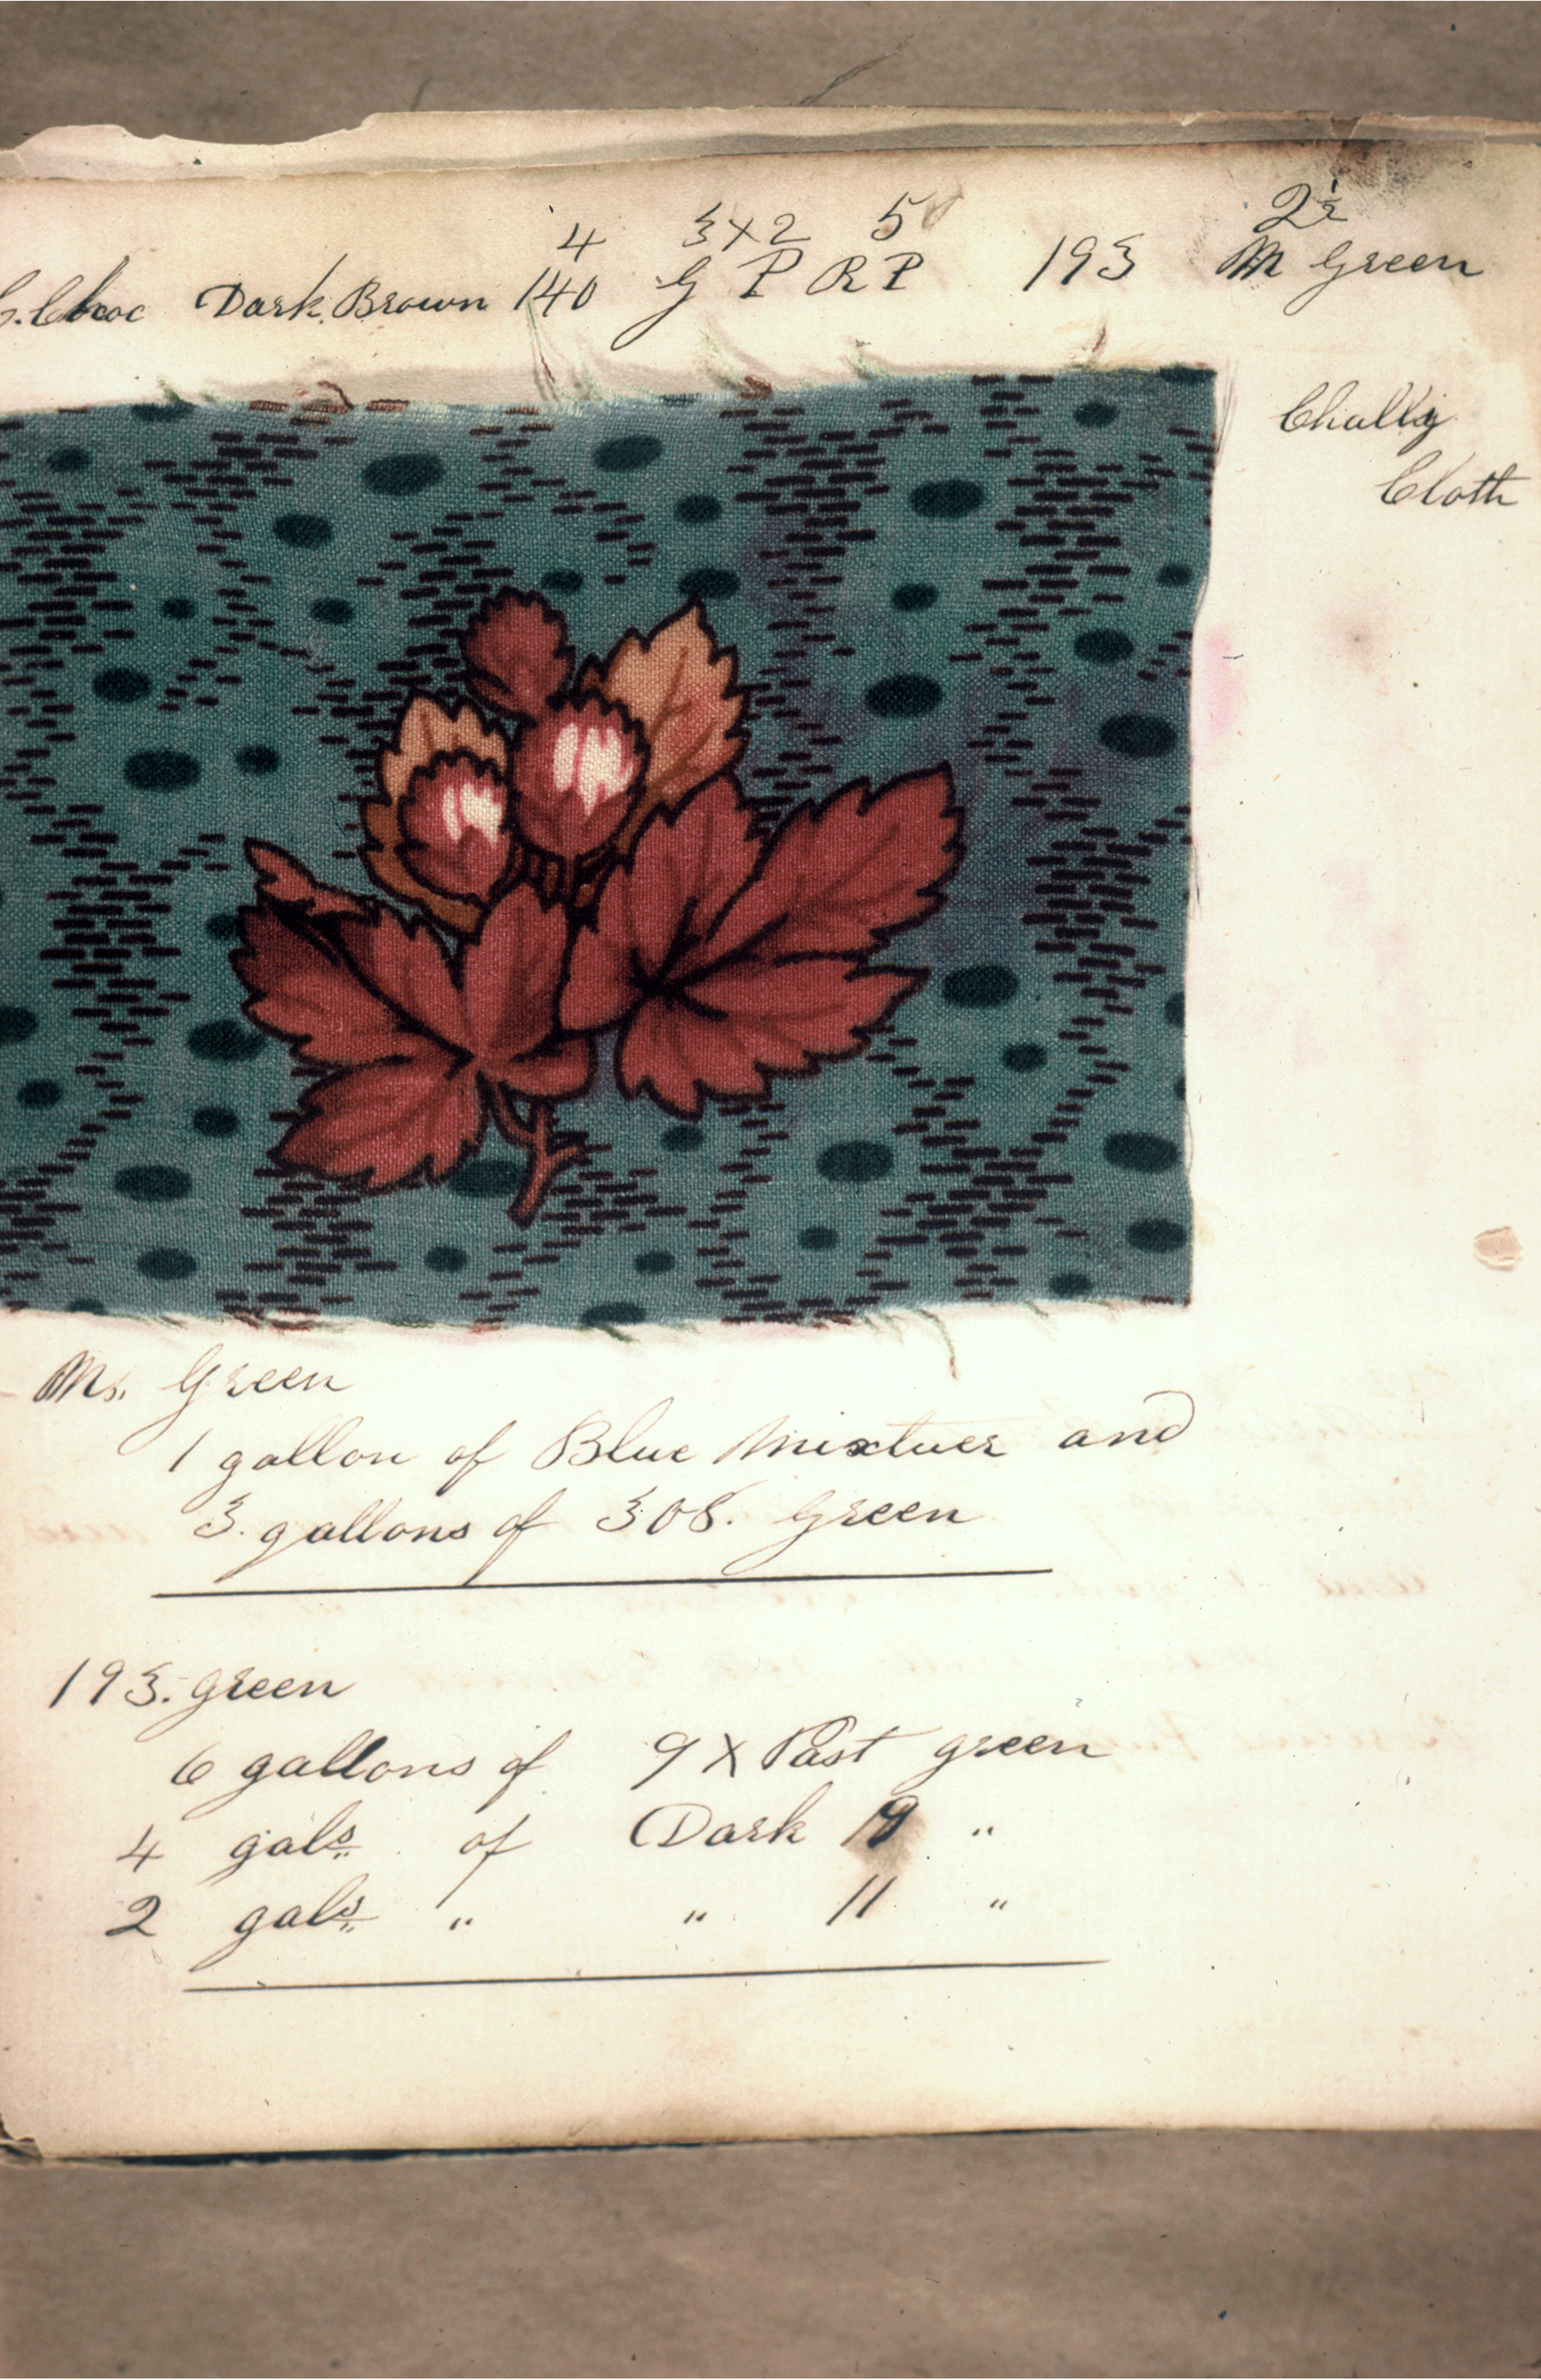 4 3x2 5 2½
Choc Dark Brown 140 G P R P 193 M Green
Chally
Cloth
Ms. Green
1 gallon of Blue Mixtuer and
3. gallons of 308. Green
193. green
6 gallons of 9 X Past green
4 gals. of Dark 19 "
2 gals. " " 11 "